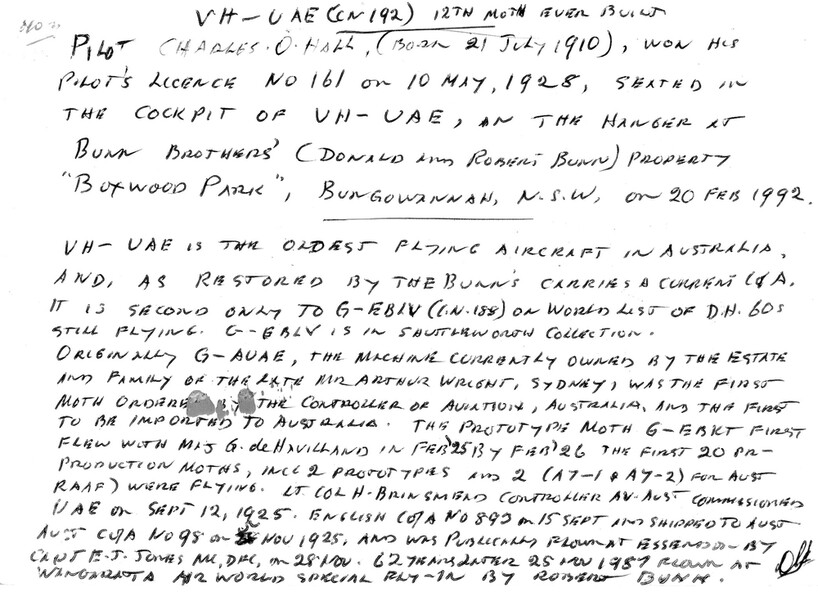 VH-UAE (CN 192) 12TH MOTH EVER BUILT
PILOT CHARLES. O. HALL, (BORN 21 JULY 1910), WON HIS
PILOT'S LICENCE NO 161 ON 10 MAY, 1928, SEATED IN
THE COCKPIT OF VH-UAE, IN THE HANGER AT
BUNN BROTHERS' (DONALD AND ROBERT BUNN) PROPERTY
"BOXWOOD PARK", BUNGOWANNAH, N.S.W, ON 20 FEB 1992.
VH-UAE IS THE OLDEST FLYING AIRCRAFT IN AUSTRALIA,
AND, AS RESTORED BY THE BUNN'S CARRIES A CURRENT C of A.
IT IS SECOND ONLY TO G-EBLV (C.N. 188) ON WORLD LIST OF D.H. 60s
STILL FLYING. G-EBLV IS IN SHUTTLEWORTH COLLECTION.
ORIGINALLY G-AUAE, THE MACHINE CURRENTLY OWNED BY THE ESTATE
AND FAMILY OF THE LATE MR ARTHUR WRIGHT, SYDNEY, WAS THE FIRST
MOTH ORDERE BY THE CONTROLLER OF AVIATION, AUSTRALIA, AND THE FIRST
TO BE IMPORTED TO AUSTRALIA. THE PROTOTYPE MOTH G-EBKT FIRST
FLEW WITH MAJ G. de HAVILLAND IN FEB '25 BY FEB '26 THE FIRST 20 PR-
PRODUCTION MOTHS, INCL 2 PROTOTYPES AND 2 (A7-1 & A7-2) FOR AUST
RAAF) WERE FLYING. LT. COL H. BRINSMEAD CONTROLLER AV. AUST COMMISSIONED
UAE ON SEPT 12, 1925. ENGLISH C of A NO 893 ON 15 SEPT AND SHIPPED TO AUST
AUST C of A NO 98 ON NOV 1925, AND WAS PUBLICALLY FLOWN AT ESSENDON BY
CAPT E.J. JONES MC, DFC, ON 28 NOV. 62 YEARS LATER 28 NOV 1987 FLOWN AT
WANGARATTA AIR WORLD SPECIAL FLY-IN BY ROBERT BUNN.